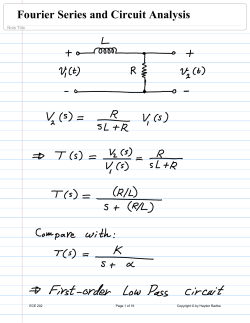 Fourier Series and Circuit Analysis
Note Title
L
+ +
V₁(t) R V₂(t)
- -
V₂(s) = R / (sL+R) V₁(s)
⇒ T(s) = V₂(s) / V₁(s) = R / (sL+R)
T(s) = (R/L) / (s + (R/L))
Compare with:
T(s) = K / (s + α)
⇒ First-order Low Pass circuit
Page 1 of 19